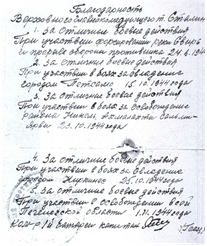 Благодарность
Верховного Главнокомандующего т. Сталин
1. За отличные боевые действия
При участии форсировании реки Свирь
и прорыве обороны противника 24.6.1944
2. За отличные боевые действия
При участии в боях за овладение
городом "Петсамо" 15.10.1944 года
3. За отличные боевые действия
При участии в боях за освобождение
района Никель, Ахмалахти, Салми-
ярви 23.10.1944 года
4. За отличные боевые действия
При участии в боях за овладение
городом Киркенес 25.10.1944 года
5. За отличные боевые действия
При участии в освобождении всей
Печенгской области 1.11.1944 года
Батареи капитан